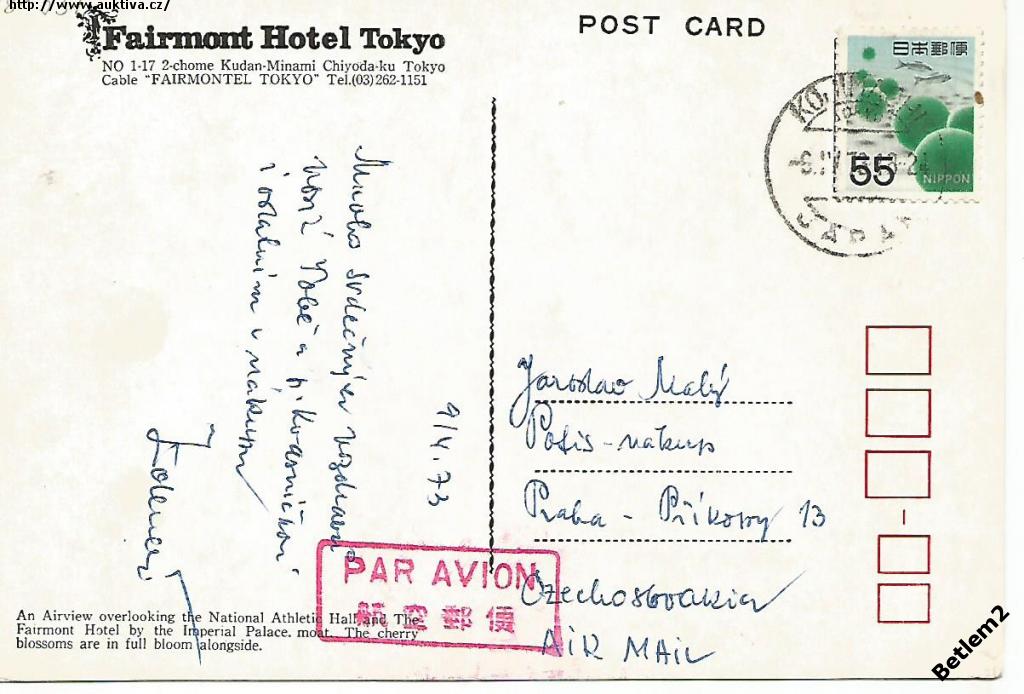 http://www.auktiva.cz/
Fairmont Hotel Tokyo
NO 1-17 2-chome Kudan-Minami Chiyoda-ku Tokyo
Cable "FAIRMONTEL TOKYO" Tel.(03)262-1151
POST CARD
日本郵便
55
NIPPON
JAPAN
Mnoho srdečných pozdravů
Tobě a p.
i ostatním v nákupu
Zdenek
9/4.73
Jaroslav Malý
Potis-nákup
Praha - Příkopy 13
Czechoslovakia
AIR MAIL
PAR AVION
航空郵便
An Airview overlooking the National Athletic Hall and The
Fairmont Hotel by the Imperial Palace. moat. The cherry
blossoms are in full bloom alongside.
Betlem2